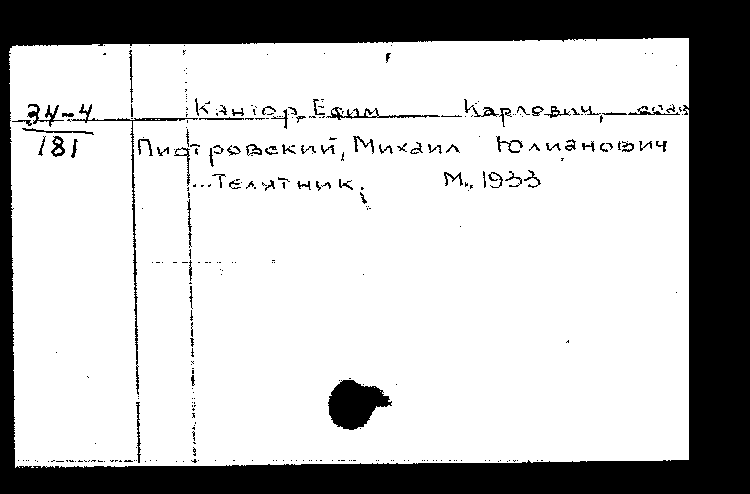 34-4
181
Кантор, Ефим Карлович, соав
Пиотровский, Михаил Юлианович
...Телятник. М., 1933